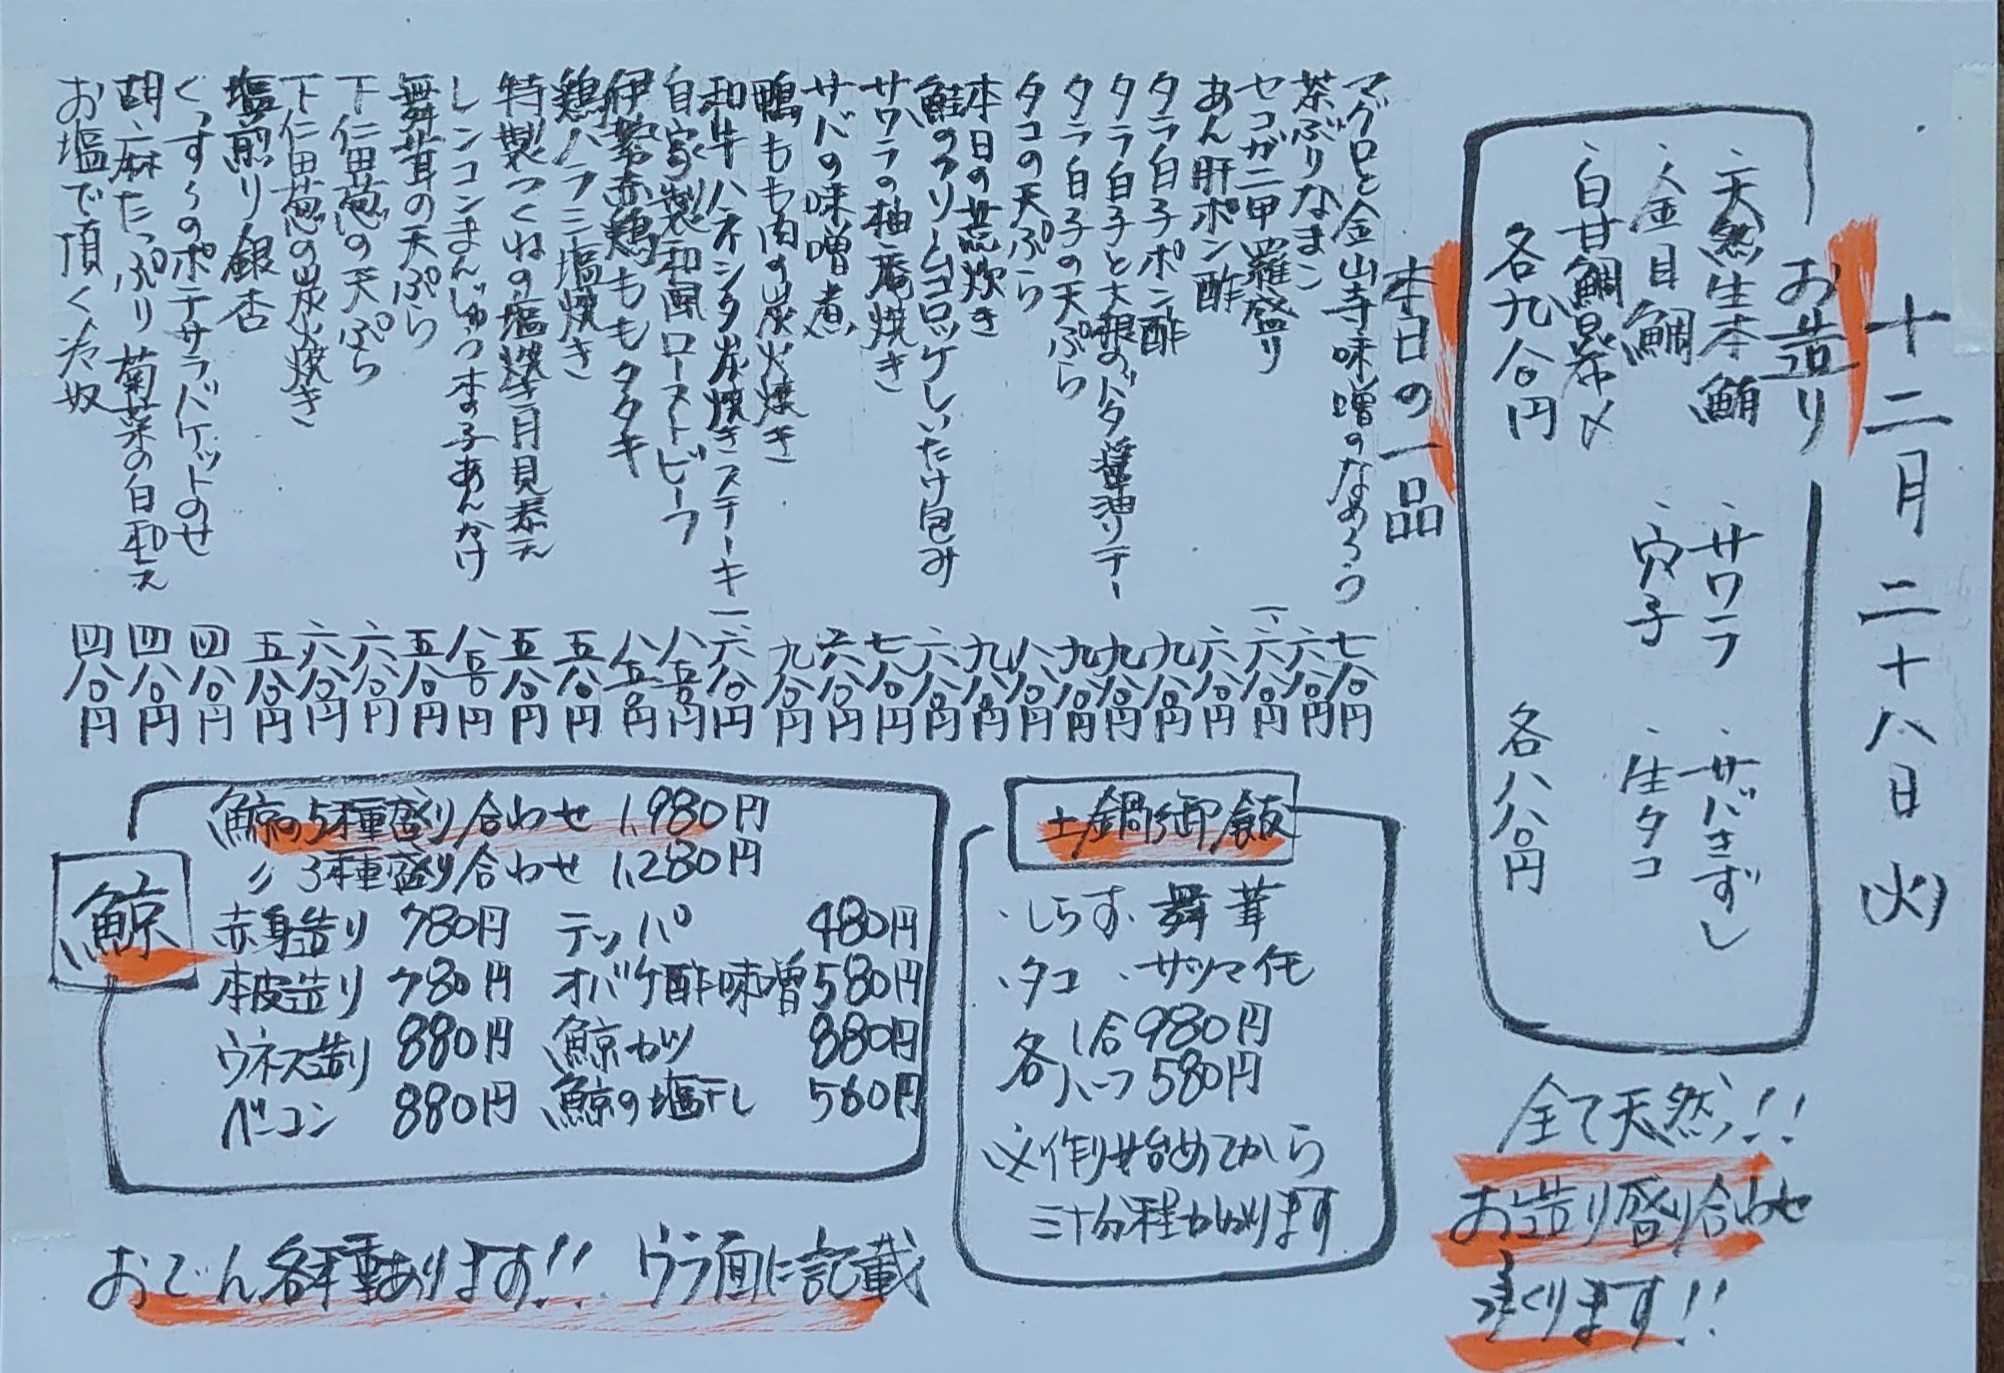 十二月二十八日(火)
お造り
・天然生本鮪 ・サワラ ・サバきずし
・金目鯛 ・穴子 ・生タコ
・白甘鯛昆布〆
各九八〇円 各八八〇円
全て天然!!
お造り盛り合わせ
承ります!!
本日の一品
マグロと金山寺味噌のなめろう 七八〇円
茶ぶりなまこ 六八〇円
セコガニ甲羅盛り 一、六八〇円
あん肝ポン酢 六八〇円
タラ白子ポン酢 九八〇円
タラ白子と大根のバタ醤油ソテー 九八〇円
タラ白子の天ぷら 九八〇円
タコの天ぷら 八八〇円
本日の荒炊き 九八〇円
鮭のクリームコロッケしいたけ包み 六八〇円
サワラの柚庵焼き 七八〇円
サバの味噌煮 六八〇円
鴨もも肉の炭火焼き 九八〇円
和牛ハネシタ炭焼きステーキ 一、六八〇円
自家製和風ローストビーフ 八五〇円
伊勢赤鶏ももタタキ 八五〇円
鶏ハラミ塩焼き 五八〇円
特製つくねの塩焼き月見添え 五八〇円
レンコンまんじゅう木の子あんかけ 八五〇円
舞茸の天ぷら 五八〇円
下仁田葱の天ぷら 六八〇円
下仁田葱の炭火焼き 六八〇円
塩煎り銀杏 五八〇円
くっすくのポテサラバケットのせ 四八〇円
胡麻たっぷり菊菜の白和え 四八〇円
お塩で頂く冷奴 四八〇円
土鍋御飯
・しらす ・舞茸
・タコ ・サツマイモ
各 1合 980円
ハーフ 580円
※作り始めてから
三十分程かかります
鯨
鯨の5種盛り合わせ 1,980円
〃 3種盛り合わせ 1,280円
赤身造り 780円 テッパ 480円
本皮造り 780円 オバケ酢味噌 580円
ウネス造り 880円 鯨カツ 880円
ベーコン 880円 鯨の塩干し 560円
おでん各種あります!! ウラ面に記載